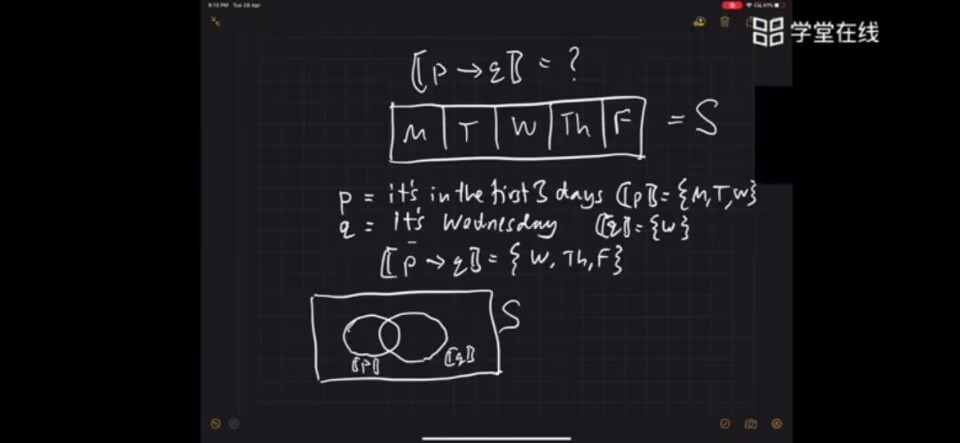 8:15 PM Tue 28 Apr
41%
学堂在线
⟦p → q⟧ = ?
M T W Th F = S
p = it's in the first 3 days ⟦p⟧ = {M, T, W}
q = It's Wednesday ⟦q⟧ = {W}
⟦p → q⟧ = { W, Th, F}
S
⟦p⟧ ⟦q⟧